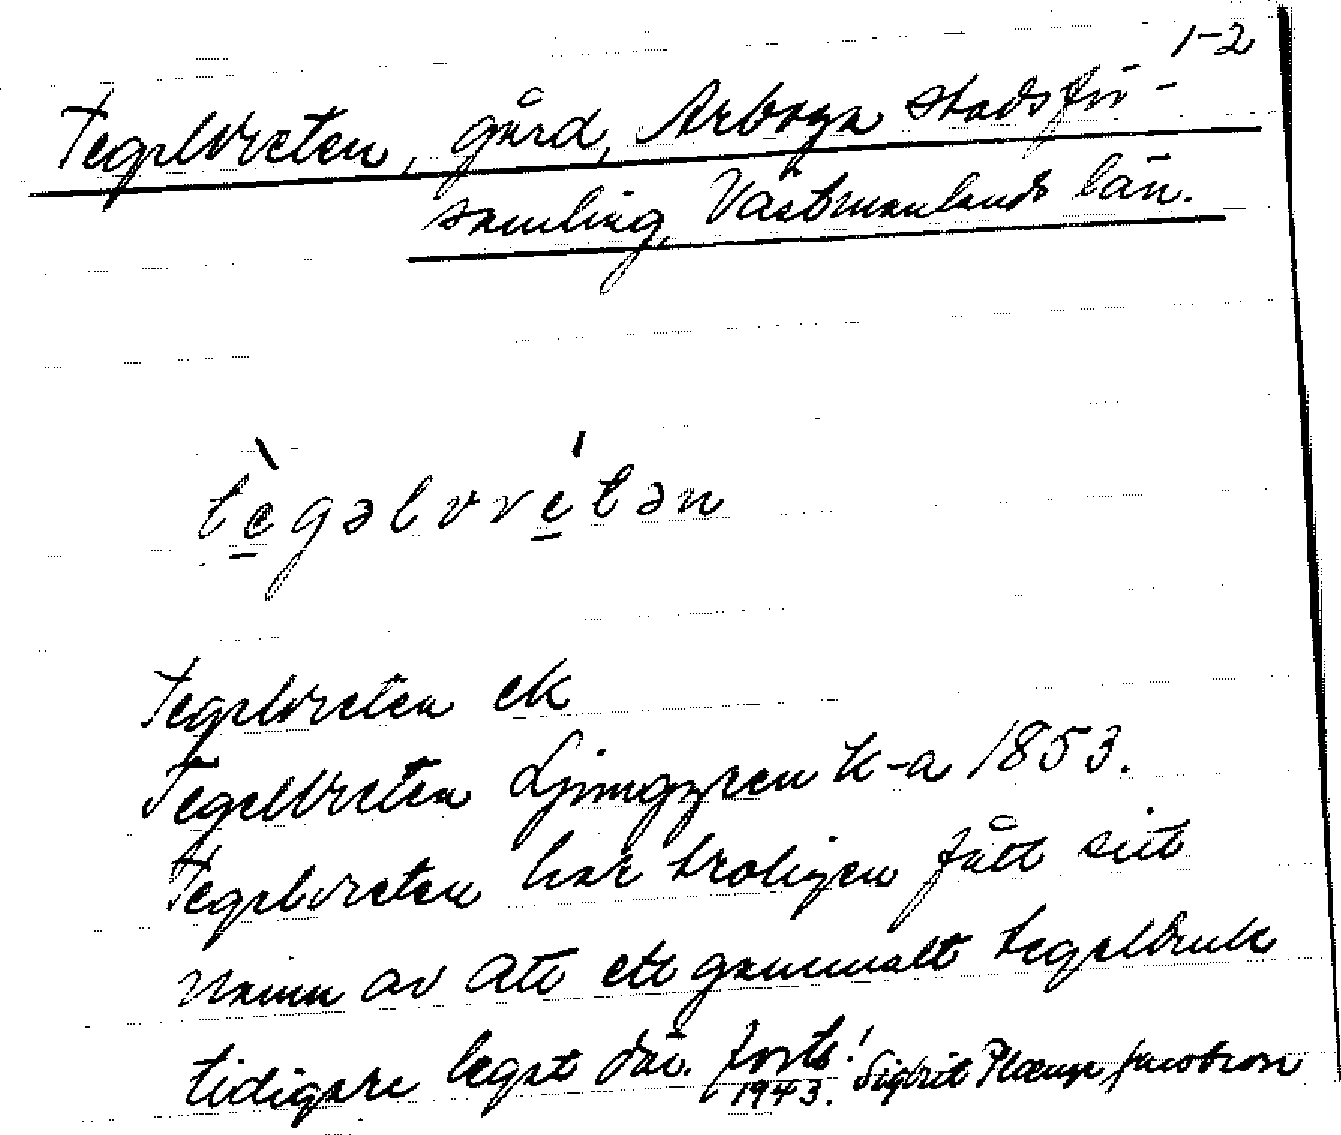 1-2
Tegelvreten, gård, Arboga stadsför-
samling, Västmanlands län.
tègəlvrétən
Tegelvreten ek
Tegelvreten Ljunggren k-a 1853.
Tegelvreten har troligen fått sitt
namn av att ett gammalt tegelbruk
tidigare legat där. forts!
1943. Sigrid Jacobson